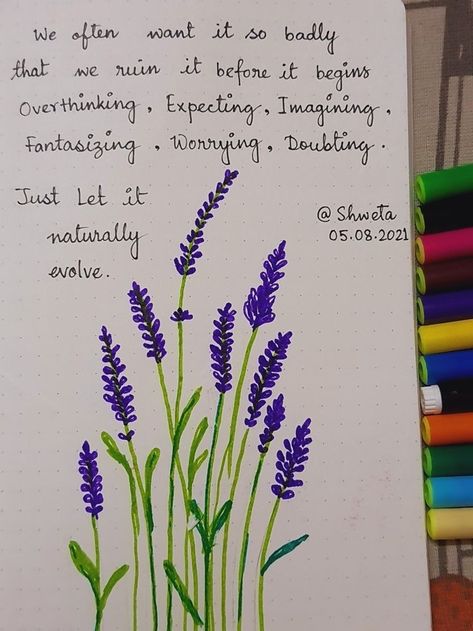 We often want it so badly
that we ruin it before it begins
Overthinking, Expecting, Imagining,
Fantasizing, Worrying, Doubting.
Just Let it
naturally
evolve.
@Shweta
05.08.2021